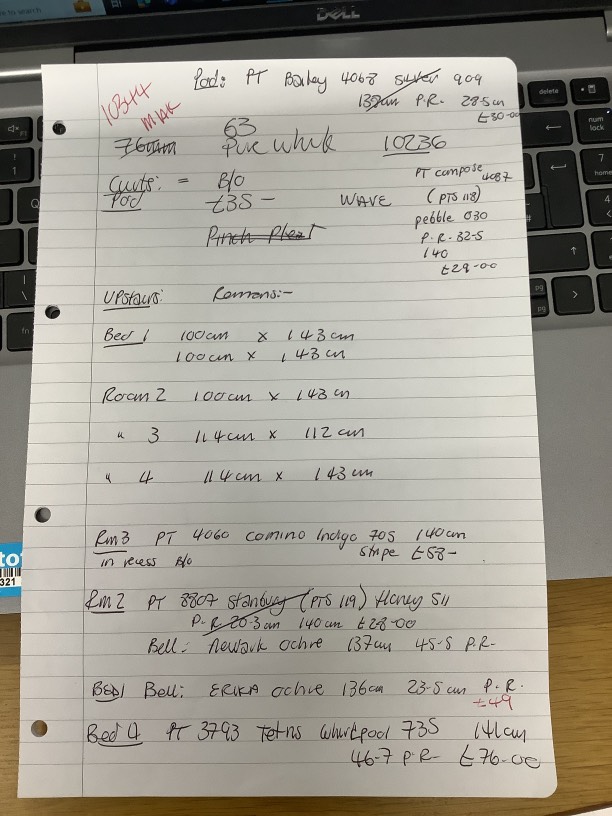 to search
DELL
Pod: PT Bailey 4068 Silver 909
137cm P.R. 28.5cm
£30-00
10344
MAK
63
760mm Pure White 10236
Curts: = B/O
Pod £35 - WAVE
PT compose 4087
(PTS 118)
pebble 030
P.R. 32-5
140
£29-00
Pinch Pleat
Upstairs: Romans:-
Bed 1 100cm x 143cm
100cm x 143cm
Room 2 100cm x 143cm
" 3 114cm x 112cm
" 4 114cm x 143cm
Rm3 PT 4060 Comino Indigo 705 140cm
in recess B/O stripe £58-
Rm2 PT 8807 Stanbury (PTS 119) Honey 511
P.R 20-3cm 140cm £28-00
Bell: Newark ochre 137cm 45-5 P.R-
BED1 Bell: ERIKA Ochre 136cm 23-5cm P.R.
£49
Bed 4 PT 3793 Tetris Whirlpool 735 141cm
46-7 P.R- £76-00
delete
num lock
7
home
4
pg
pg
fn
Q
to
321